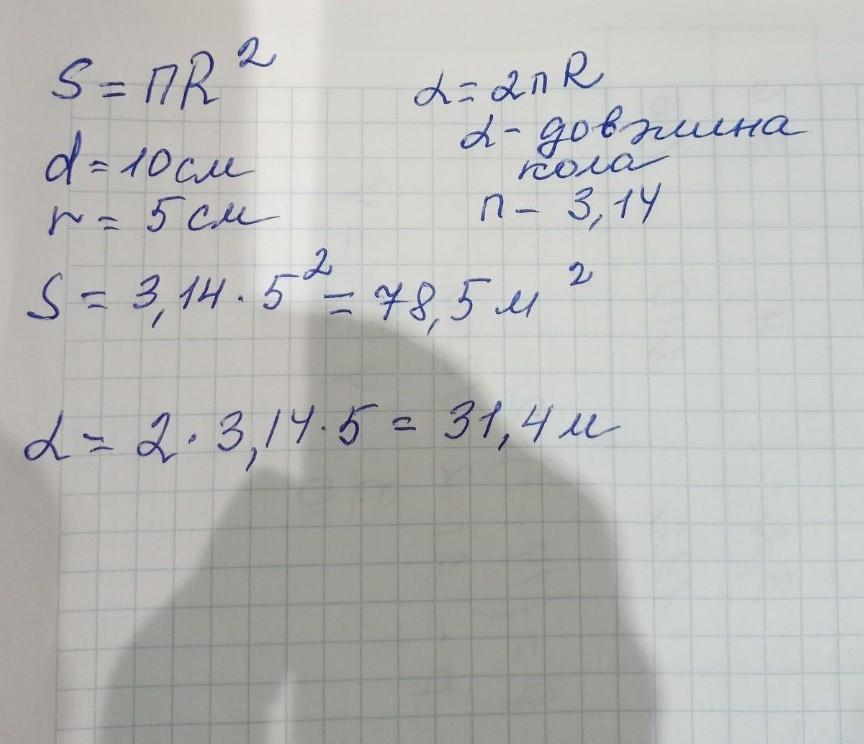 S = ПR²
d = 10 см
r = 5 см
L = 2пR
L - довжина
кола
п - 3,14
S = 3,14 · 5² = 78,5 м²
L = 2 · 3,14 · 5 = 31,4 м